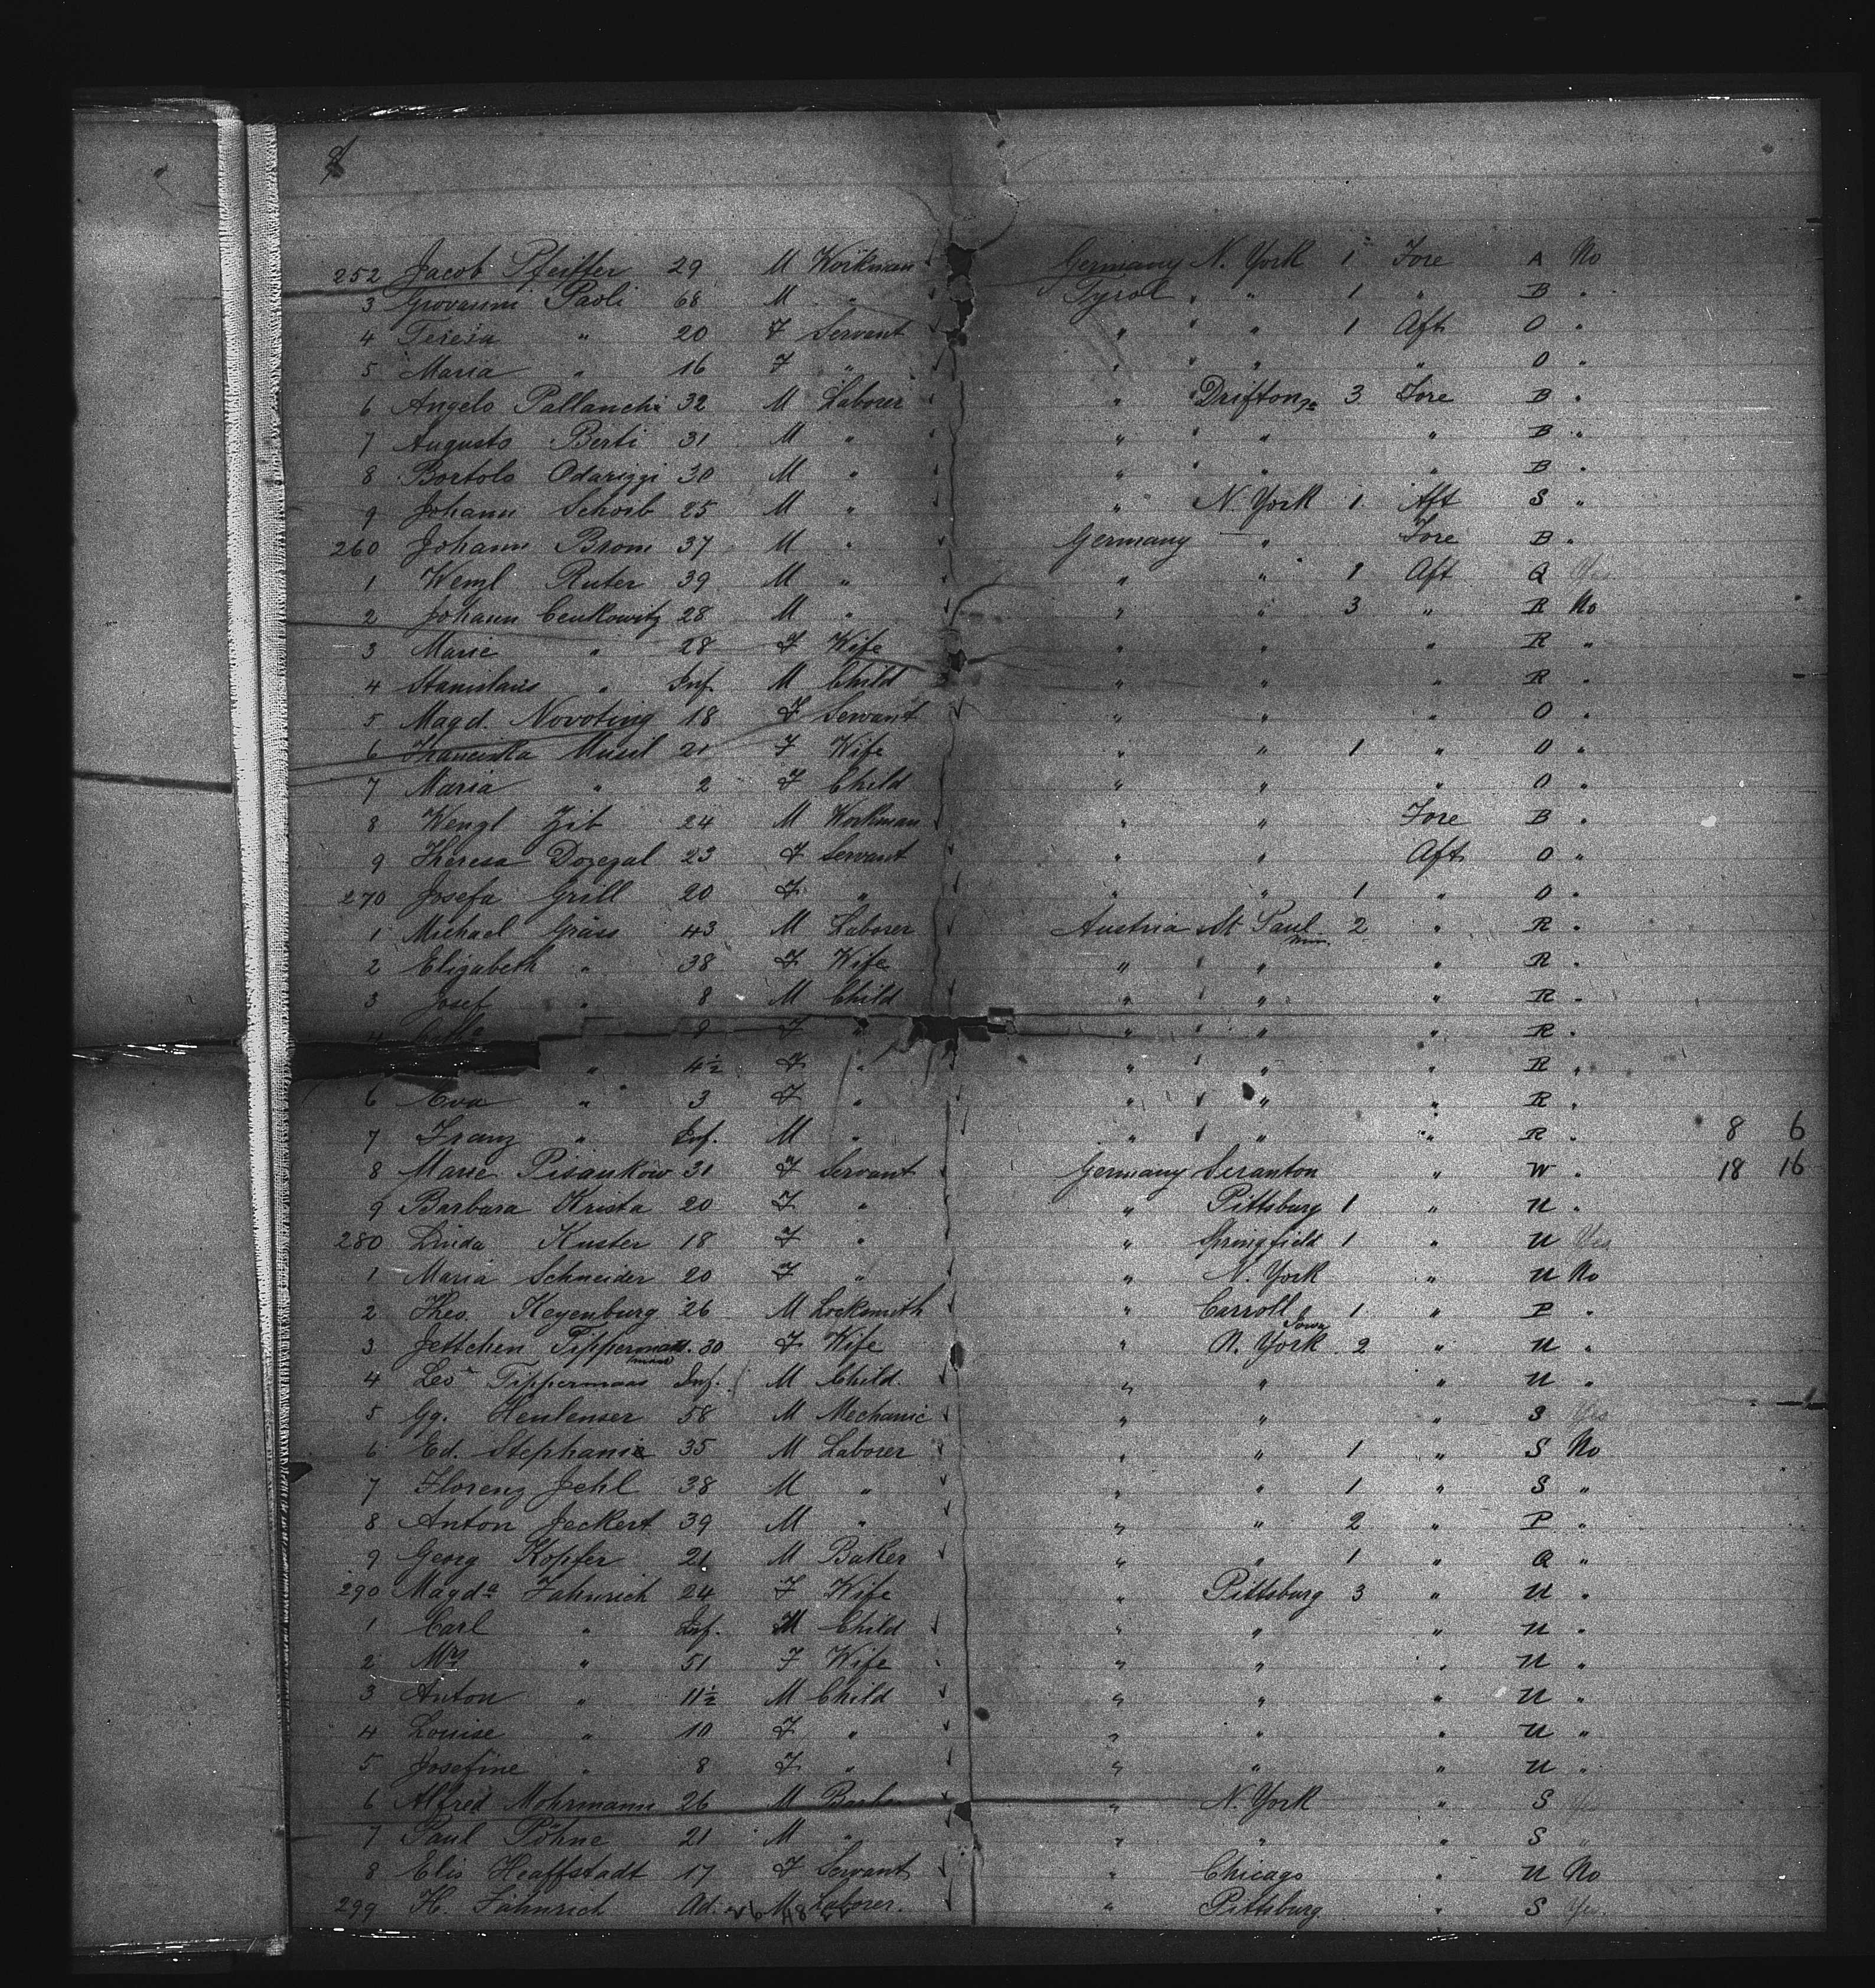 8
252 Jacob Pfeiffer 29 M Workman Germany N. York 1 Fore A No
3 Giovanni Paoli 68 M " Tyrol " " 1 " B "
4 Teresa " 20 F Servant " " " 1 Aft O "
5 Maria " 16 F " " " " " O "
6 Angelo Pallanchi 32 M Laborer " Drifton Pa 3 Fore B "
7 Augusto Berti 31 M " " " " " B "
8 Bortolo Odarizzi 30 M " " " " " B "
9 Johann Schoib 25 M " " N. York 1 Aft S "
260 Johann Brom 37 M " Germany " Fore B "
1 Wenzl Ruter 39 M " " " 1 Aft Q Yes
2 Johann Cenkowitz 28 M " " " 3 " R No
3 Marie " 28 F Wife " " " R "
4 Stanislaus " Inf. M Child " " " R "
5 Magd. Novoting 18 F Servant " " " O "
6 Franciska Musil 21 F Wife " " 1 " O "
7 Maria " 2 F Child " " " O "
8 Wenzl Zib 24 M Workman " " Fore B "
9 Theresa Dozegal 23 F Servant " " Aft O "
270 Josefa Grill 20 F " " " 1 " O "
1 Michael Gräss 43 M Laborer Austria St Paul Min. 2 " R "
2 Elizabeth " 38 F Wife " " " " R "
3 Josef " 8 M Child " " " " R "
4 " F " " " " " R "
" 4½ F " " " " " R "
6 Eva " 3 F " " " " " R "
7 Franz " Inf. M " " " " " R " 8 6
8 Marie Pisankow 31 F Servant Germany Scranton " W " 18 16
9 Barbara Krista 20 F " " Pittsburg 1 " U "
280 Linda Kuster 18 F " " Springfield 1 " U Yes
1 Maria Schneider 20 F " " N. York " U No
2 Theo. Keyenburg 26 M Locksmith " Carroll Iowa 1 " P "
3 Jettchen Tippermann 30 F Wife " N. York 2 " U "
4 Leo Tippermaas Inf. M Child " " " U "
5 Gg. Henlenser 58 M Mechanic " " " S Yes
6 Ed. Stephanie 35 M Laborer " " 1 " S No
7 Florenz Jehl 38 M " " " 1 " S "
8 Anton Jeckert 39 M " " " 2 " P "
9 Georg Kopfer 21 M Baker " " 1 " Q "
290 Magda Fahnrich 24 F Wife " Pittsburg 3 " U "
1 Carl " Inf. M Child " " " U "
2 Mrs " 51 F Wife " " " U "
3 Anton " 11½ M Child " " " U "
4 Louise " 10 F " " " " U "
5 Josefine " 8 F " " " " U "
6 Alfred Mohrmann 26 M " N. York " S
7 Paul Pöhne 21 M " " " " S "
8 Elis Heaffstadt 17 F Servant " Chicago " U No
299 H. Fähnrich Ad. 26 M Laborer " Pittsburg " S Yes